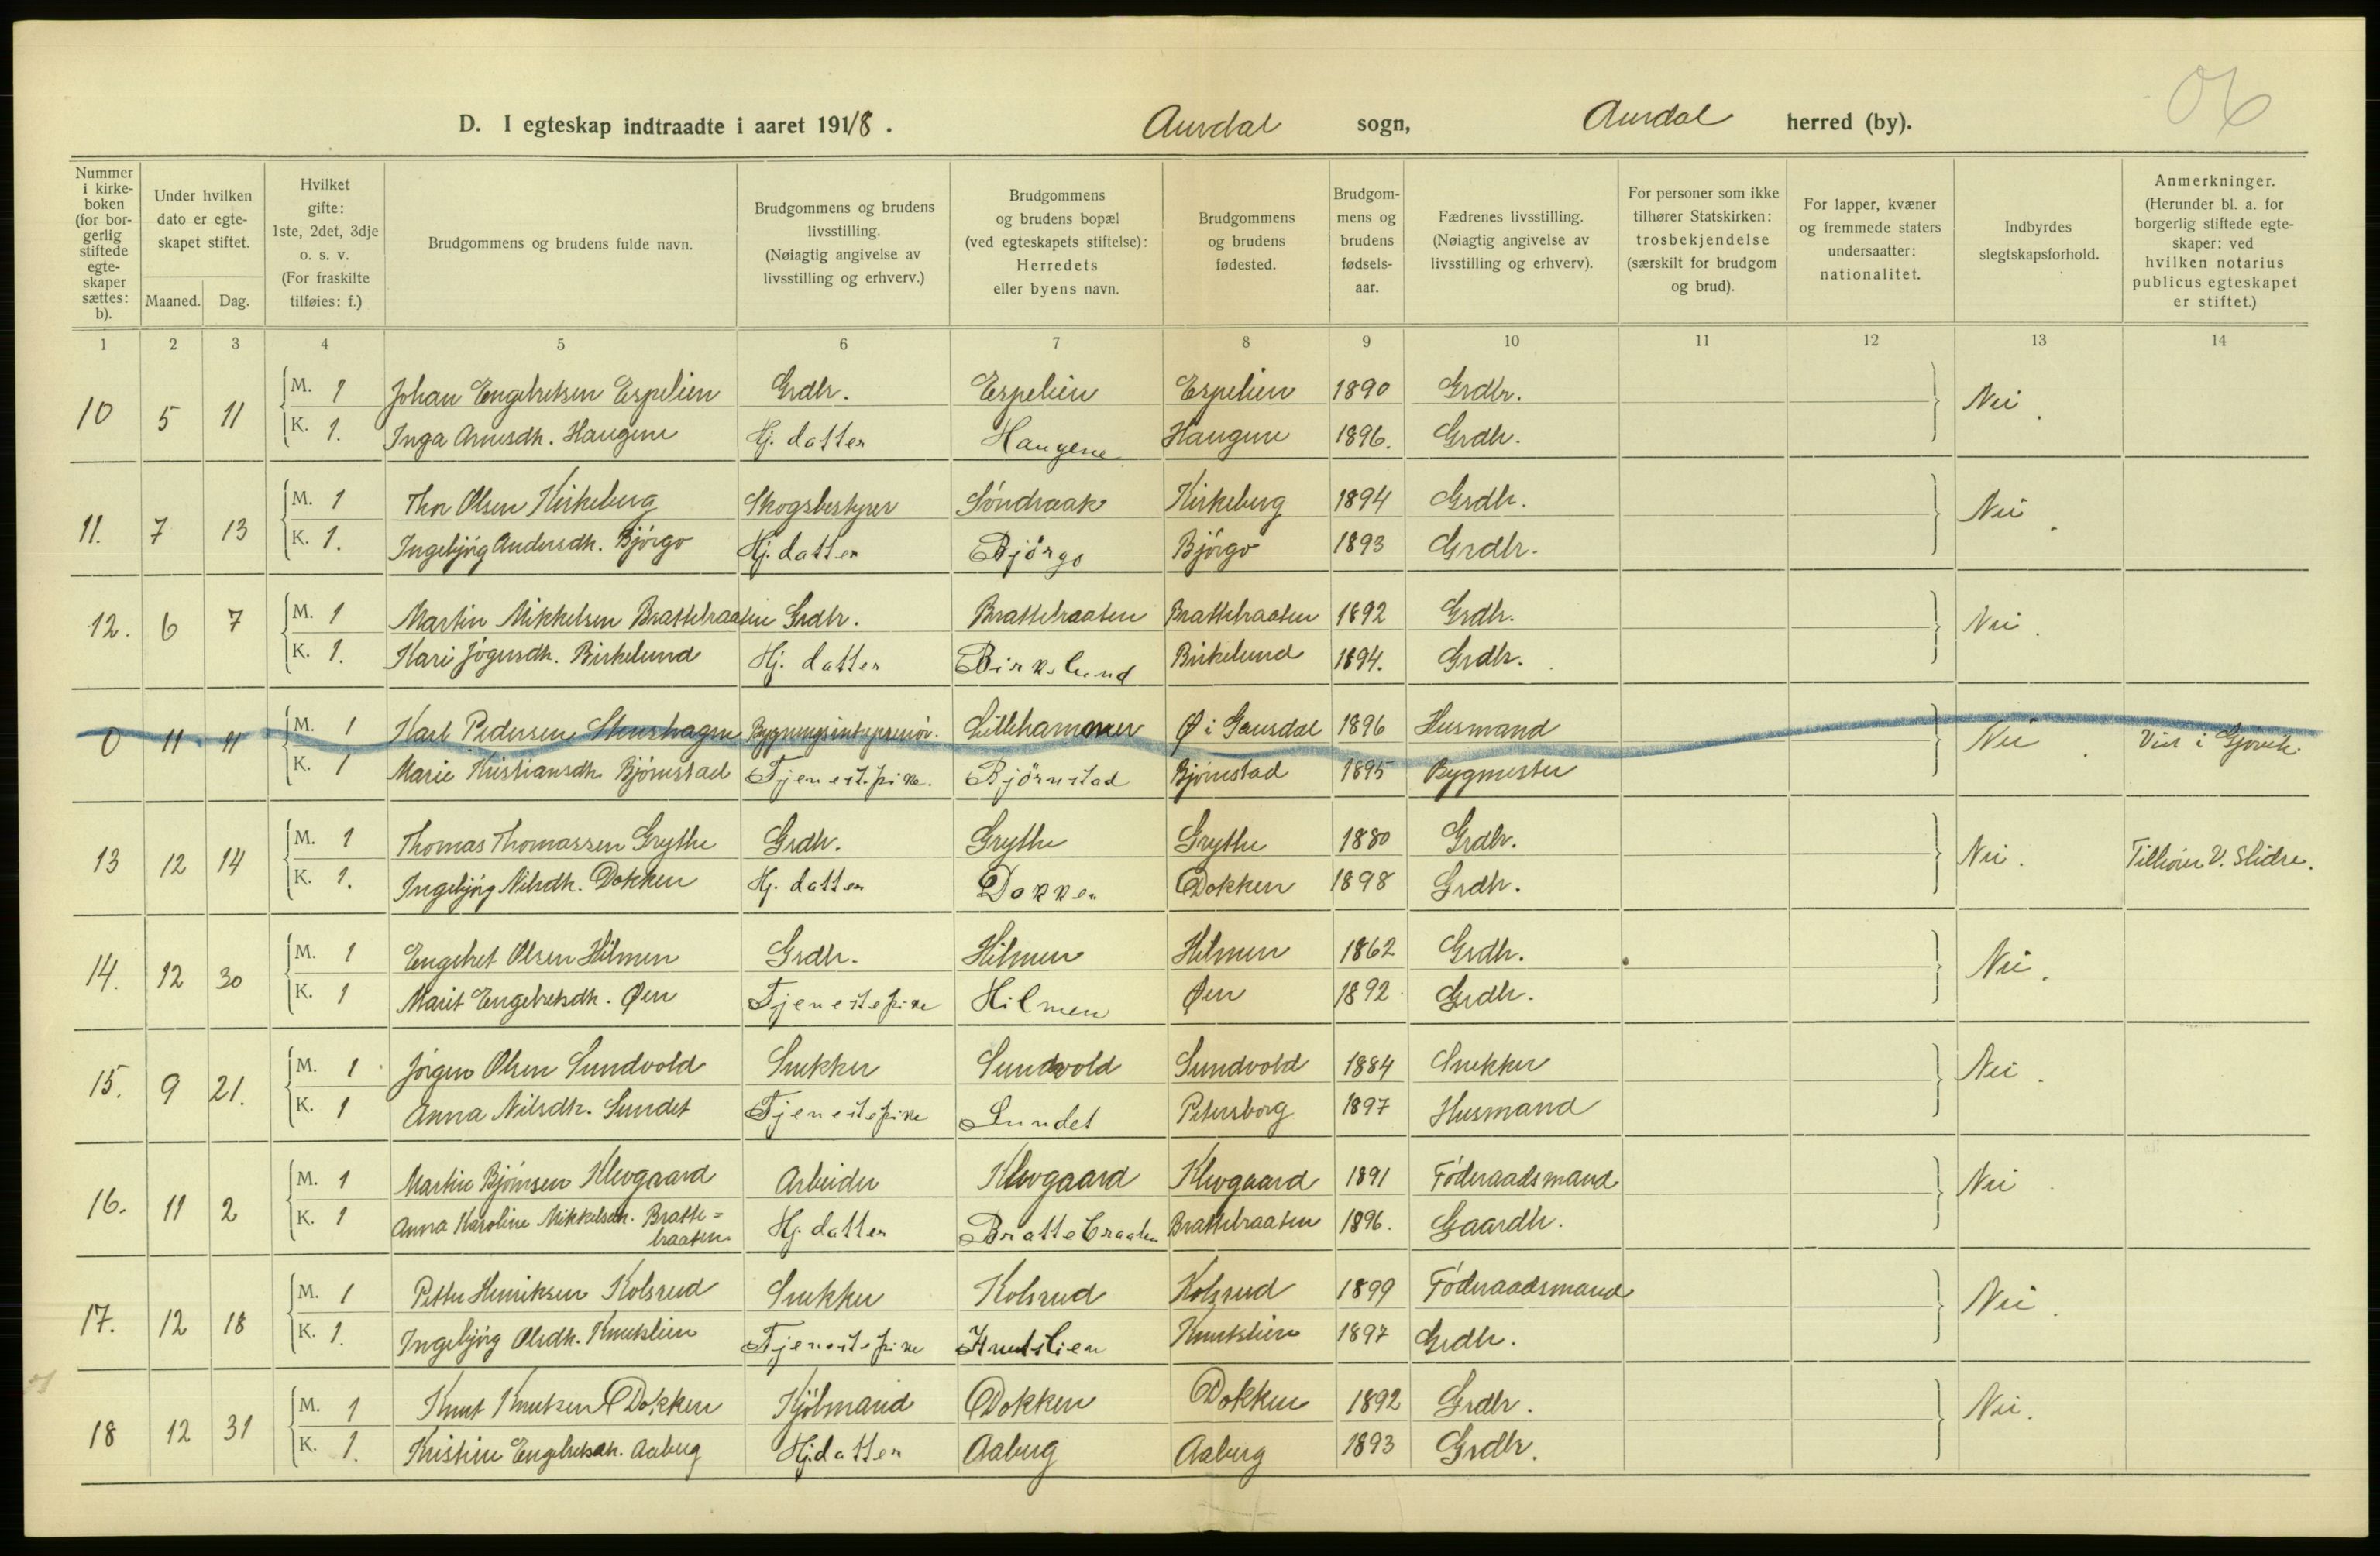 06
D. I egteskap indtraadte i aaret 1918. Aurdal sogn, Aurdal herred (by).
Nummer i kirke-boken (for bor-gerlig stiftede egte-skaper sættes: b).
Under hvilken dato er egte-skapet stiftet.
Maaned. Dag.
Hvilket gifte: 1ste, 2det, 3dje o. s. v. (For fraskilte tilføies: f.)
Brudgommens og brudens fulde navn.
Brudgommens og brudens livsstilling. (Nøiagtig angivelse av livsstilling og erhverv.)
Brudgommens og brudens bopæl (ved egteskapets stiftelse): Herredets eller byens navn.
Brudgommens og brudens fødested.
Brudgom-mens og brudens fødsels-aar.
Fædrenes livsstilling. (Nøiagtig angivelse av livsstilling og erhverv).
For personer som ikke tilhører Statskirken: trosbekjendelse (særskilt for brudgom og brud).
For lapper, kvæner og fremmede staters undersaatter: nationalitet.
Indbyrdes slegtskapsforhold.
Anmerkninger. (Herunder bl. a. for borgerlig stiftede egte-skaper: ved hvilken notarius publicus egteskapet er stiftet.)
1 2 3 4 5 6 7 8 9 10 11 12 13 14
10 5 11 M. 1 Johan Engebretsen Espelien Grdbr. Espelien Espelien 1890 Grdbr. Nei.
K. 1. Inga Arnesdtr. Haugene Hj. datter Haugene Haugene 1896. Grdbr.
11. 7 13 M. 1 Thor Olsen Kirkeberg Skogsbestyrer Söndraak Kirkeberg 1894 Grdbr. Nei.
K. 1. Ingebjörg Andersdtr. Björgo Hj. datter Björgo Björgo 1893 Grdbr.
12. 6 7 M. 1 Martin Mikkelsen Brattebraaten Grdbr. Brattebraaten Brattebraaten 1892 Grdbr. Nei.
K. 1. Kari Jögersdtr. Birkelund Hj. datter Birkelund Birkelund 1894. Grdbr.
0 11 11 M. 1 Karl Pedersen Stenshagen Bygningsintreprenör. Lillehammer Ø i Gausdal 1896 Husmand Nei. Viet i Gjövik.
K. 1 Marie Kristiansdtr. Björnstad Tjenestepike. Björnstad Björnstad 1895 Bygmester
13 12 14 M. 1 Thomas Thomassen Grythe Grdbr. Grythe Grythe 1880 Grdbr. Nei. Tilhörer V. Slidre.
K. 1. Ingebjörg Nilsdtr. Dokken Hj. datter Dokken Dokken 1898 Grdbr.
14. 12 30 M. 1 Engebret Olsen Hilmen Grdbr. Hilmen Hilmen 1862 Grdbr. Nei.
K. 1 Marit Engebretsdtr. Øen Tjenestepike Hilmen Øen 1892 Grdbr.
15. 9 21. M. 1 Jörgen Olsen Sundvold Snekker Sundvold Sundvold 1884 Snekker Nei.
K. 1 Anna Nilsdtr. Sundet Tjenestepike Sundet Petersborg 1897 Husmand
16. 11 2 M. 1 Martin Björnsen Klevgaard Arbeider Klevgaard Klevgaard 1891 Föderaadsmand Nei
K. 1 Anna Karoline Mikkelsdtr. Bratte=
braaten Hj. datter Brattebraaten Brattebraaten 1896. Gaardbr.
17. 12 18 M. 1 Petter Henriksen Kolsrud Snekker Kolsrud Kolsrud 1899 Föderaadsmand Nei.
K. 1. Ingebjörg Olsdtr. Knutslien Tjenestepike Knutslien Knutslien 1897 Grdbr.
18 12 31 M. 1 Knut Knutsen Dokken Kjölmand Dokken Dokken 1892 Grdbr. Nei.
K. 1. Kristine Engebretsdtr. Aaberg Hj. datter Aaberg Aaberg 1893 Grdbr.